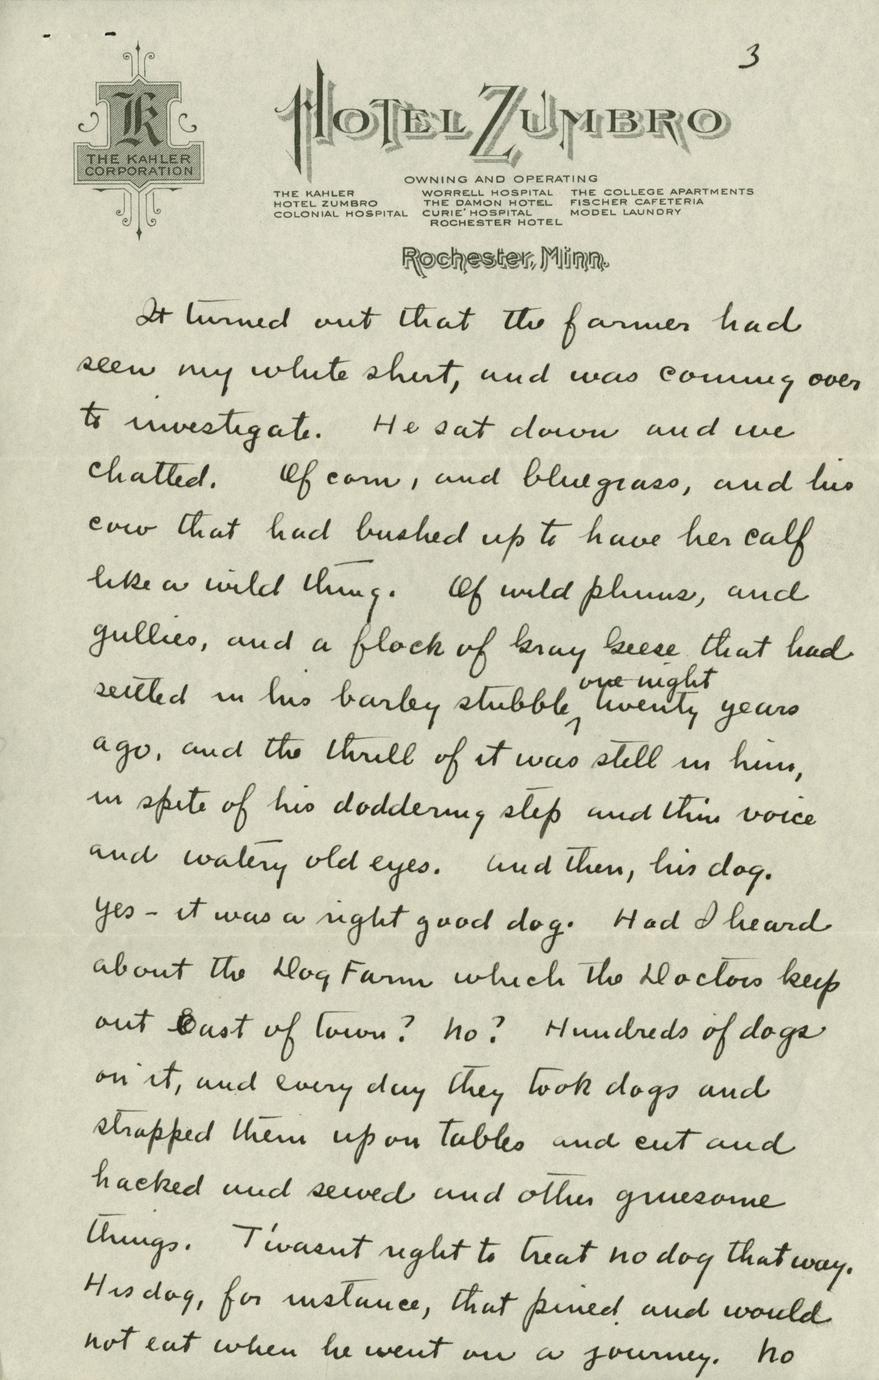 3
K
THE KAHLER
CORPORATION
HOTEL ZUMBRO
OWNING AND OPERATING
THE KAHLER WORRELL HOSPITAL THE COLLEGE APARTMENTS
HOTEL ZUMBRO THE DAMON HOTEL FISCHER CAFETERIA
COLONIAL HOSPITAL CURIE' HOSPITAL MODEL LAUNDRY
ROCHESTER HOTEL
Rochester, Minn.
It turned out that the farmer had
seen my white shirt, and was coming over
to investigate. He sat down and we
chatted. Of corn, and bluegrass, and his
cow that had bushed up to have her calf
like a wild thing. Of wild plums, and
gullies, and a flock of Gray Geese that had
one night
settled in his barley stubble, twenty years
ago, and the thrill of it was still in him,
in spite of his doddering step and thin voice
and watery old eyes. And then, his dog.
Yes - it was a right good dog. Had I heard
about the Dog Farm which the Doctors keep
out East of town? No? Hundreds of dogs
on it, and every day they took dogs and
strapped them up on tables and cut and
hacked and sewed and other gruesome
things. T'wasnt right to treat no dog that way.
His dog, for instance, that pined and would
not eat when he went on a journey. No